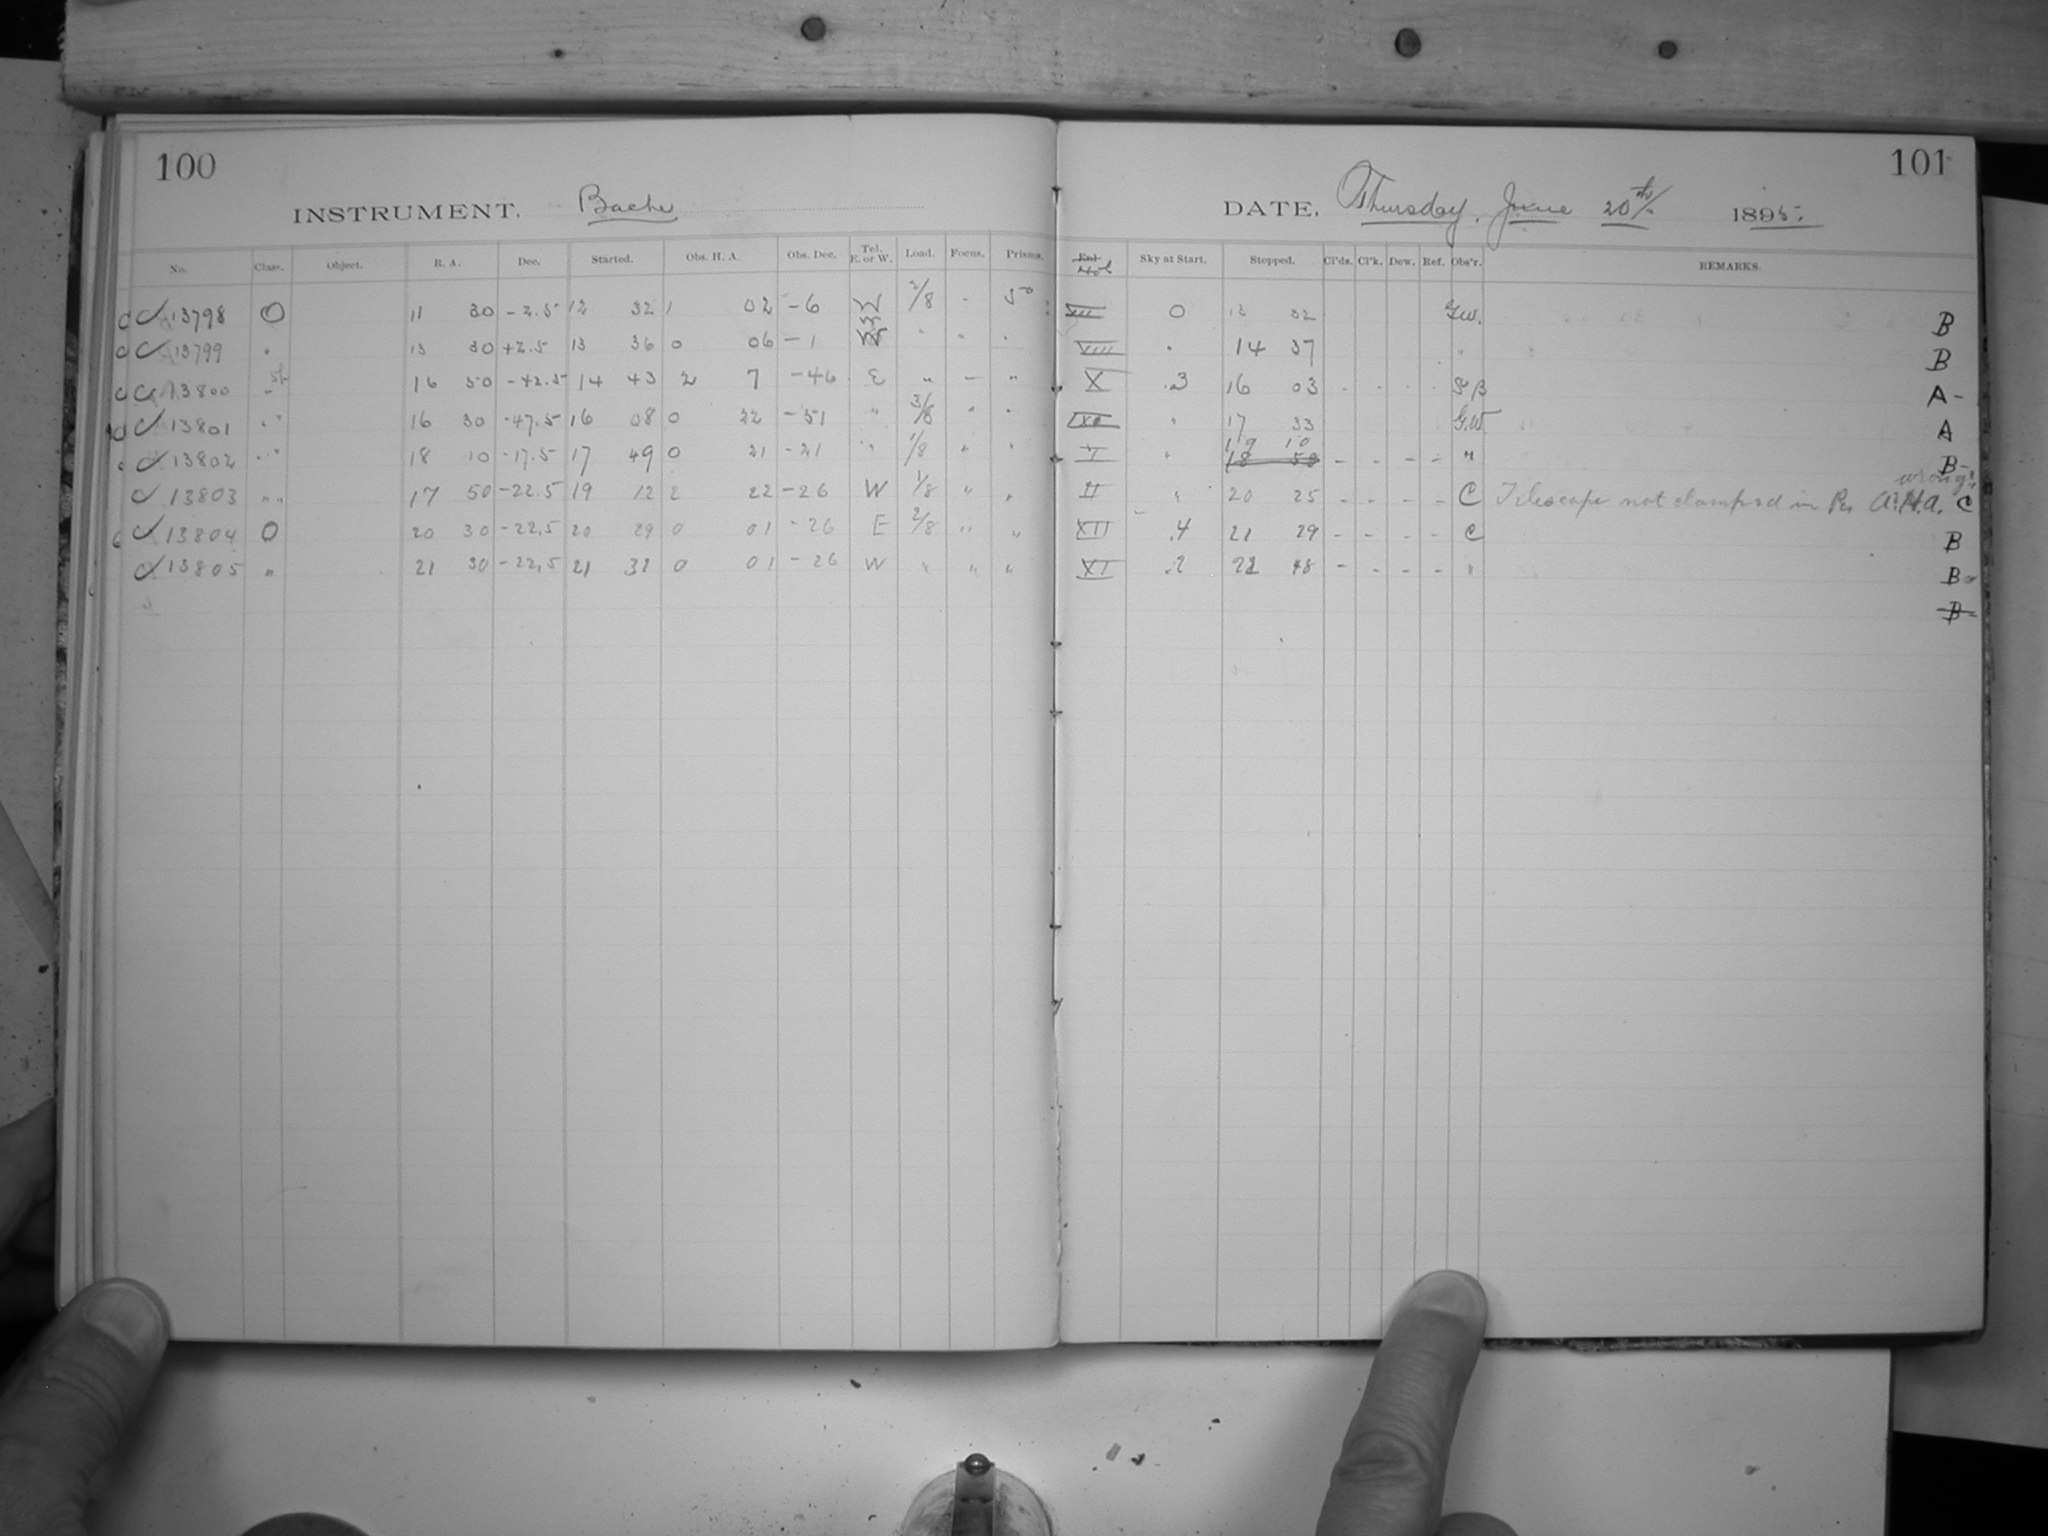 100
INSTRUMENT. Bache
No. Class. Object. R. A. Dec. Started. Obs. H. A. Obs. Dec. Tel. E. or W. Load. Focus. Prisms.
13798 O 11 30 -2.5 12 32 1 02 -6 W 2/8 - 50
13799 " 13 30 +2.5 13 36 0 06 -1 W " " "
13800 " 16 50 -42.5 14 43 2 7 -46 E " - "
13801 " " 16 30 -47.5 16 08 0 22 -51 " 3/8 " "
13802 " " 18 10 -17.5 17 49 0 21 -21 " 1/8 " "
13803 " " 17 50 -22.5 19 12 2 22 -26 W 1/8 " "
13804 O 20 30 -22.5 20 29 0 01 -26 E 2/8 " "
13805 " 21 30 -22.5 21 31 0 01 -26 W " " "
101
DATE. Thursday. June 20th/. 1895.
Sky at Start. Stopped. Cl'ds. Cl'k. Dew. Ref. Obs'r. REMARKS.
0 13 32 G.W. B
VIII " 14 37 " B
X .3 16 03 - - - - A-
" 17 33 G.W. A
I " 19 10 18 58 - - - - " B-
II " 20 25 - - - - C Telescope not clamped in R. A. wrong H.A. C
XII .4 21 29 - - - - C B
XI .2 22 48 - - - - " B-
B-